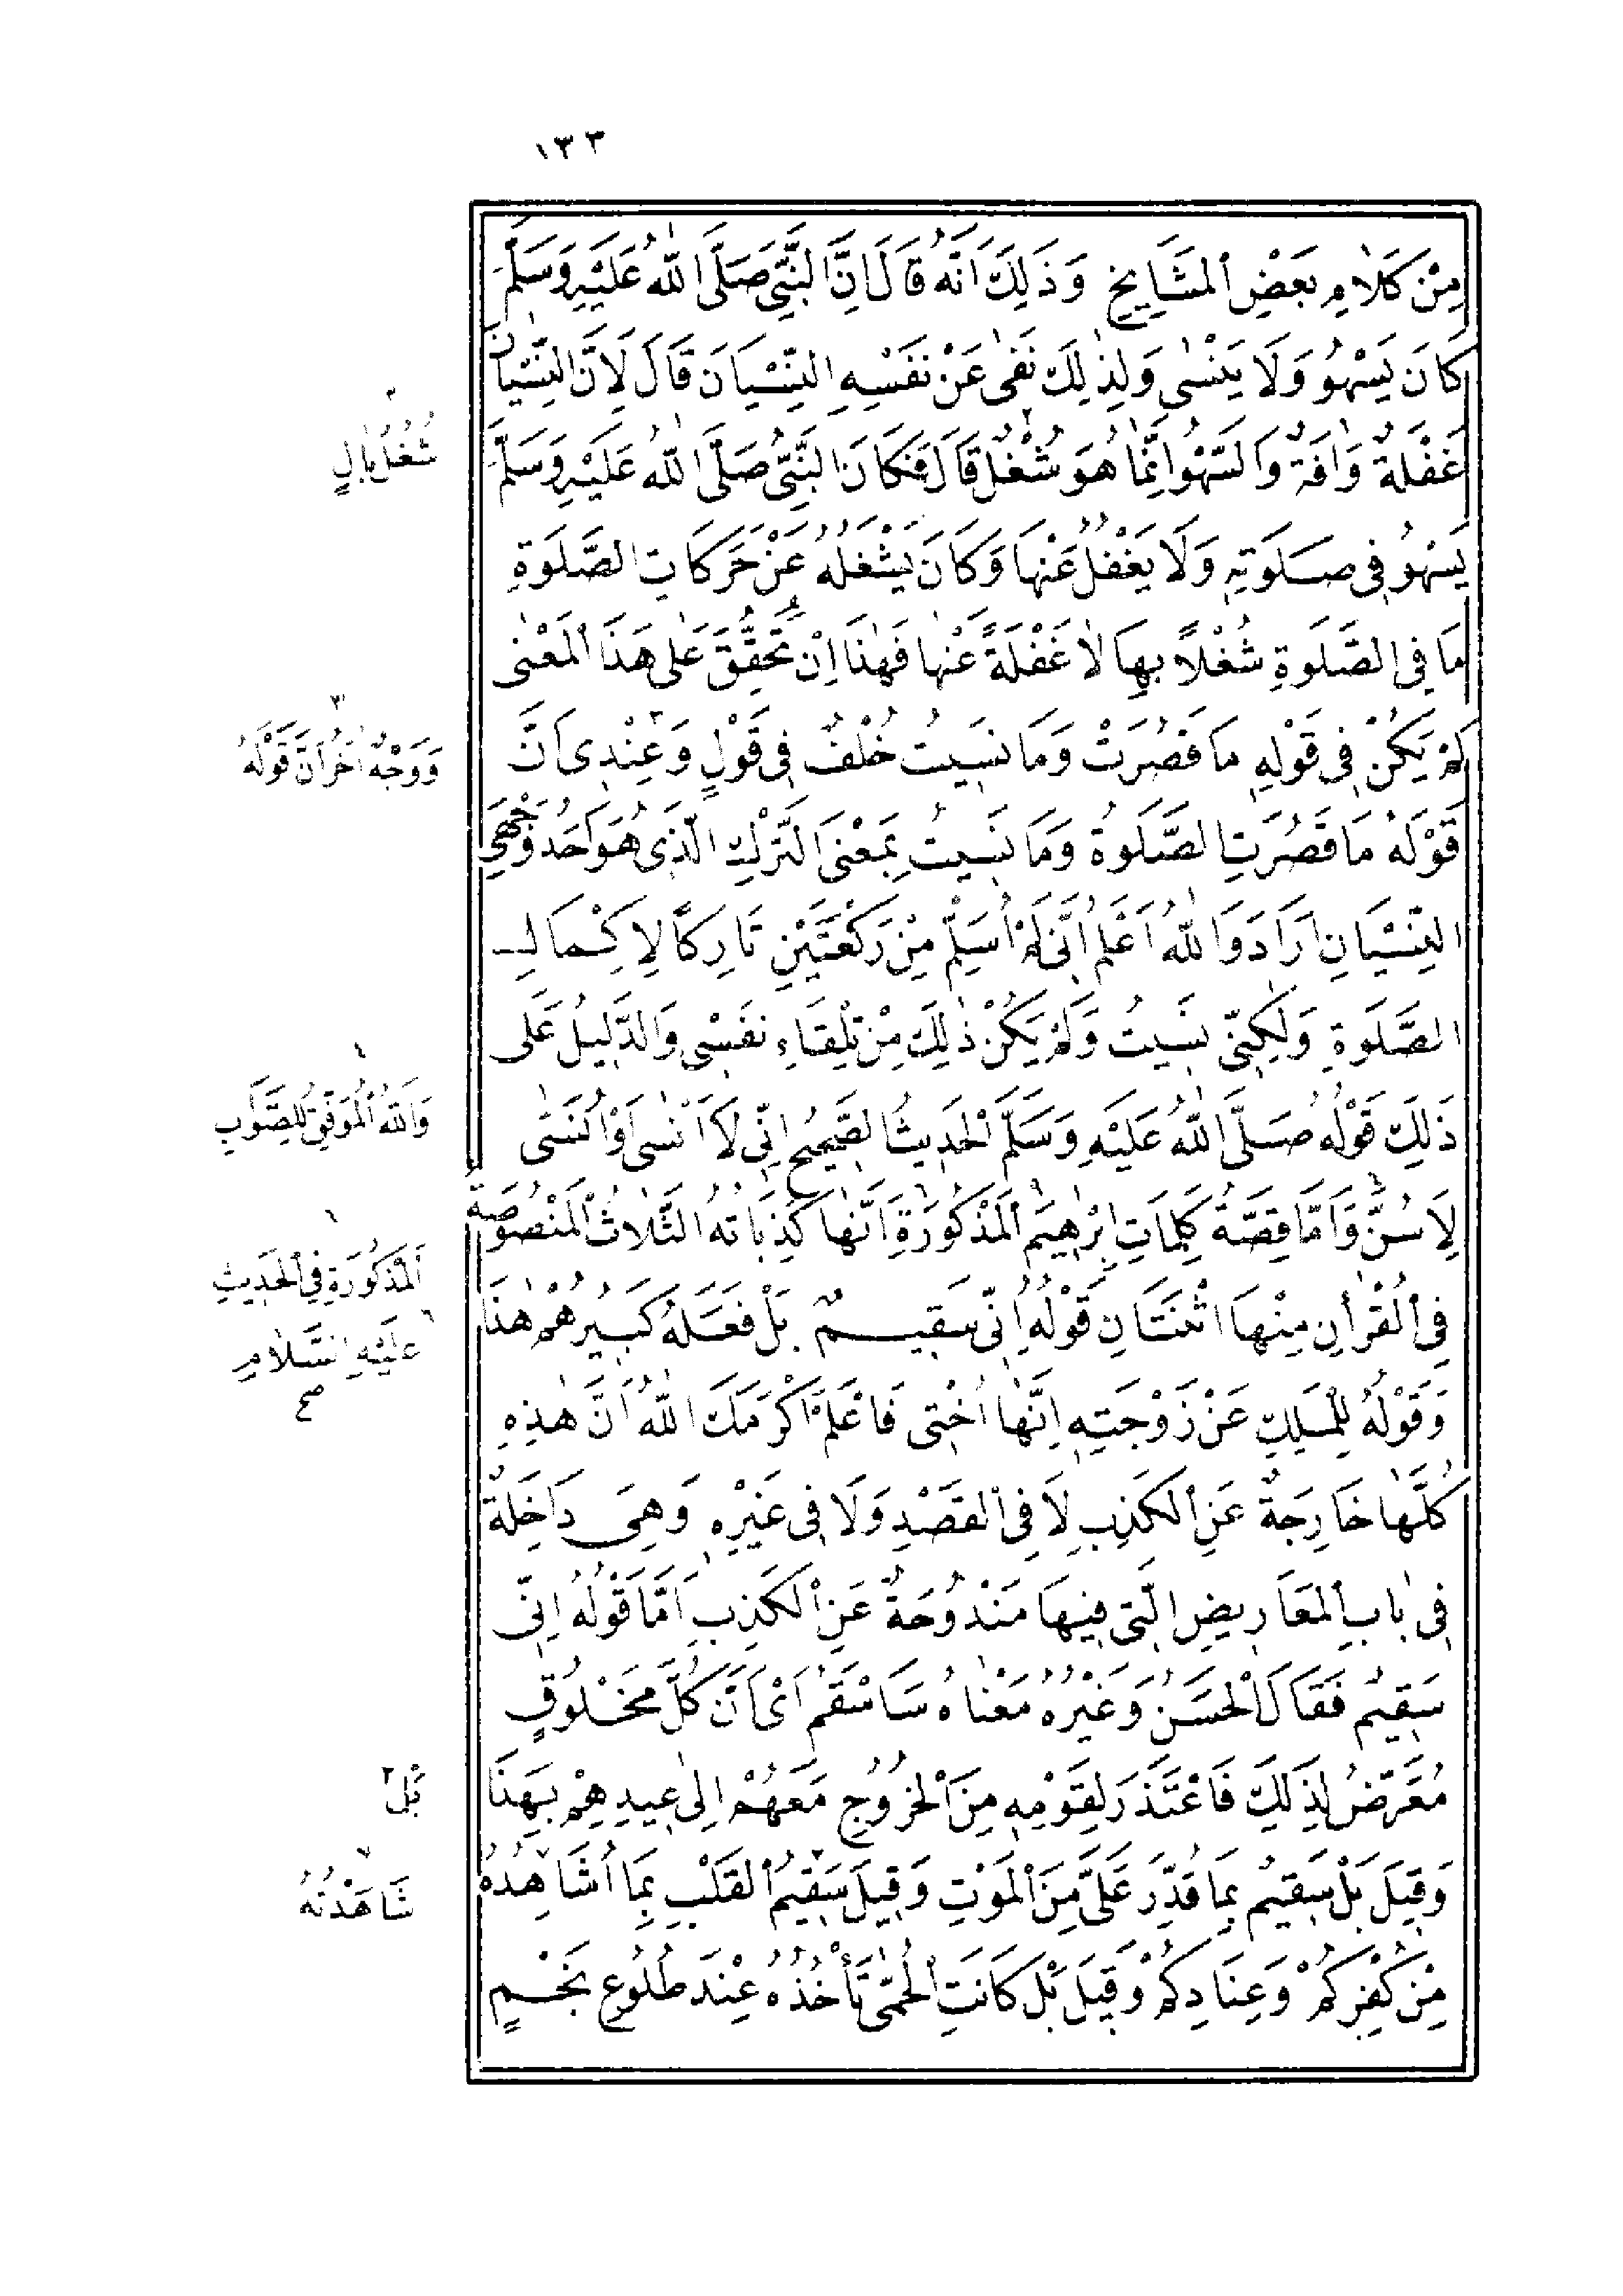 ١٣٣
مِنْ كَلَامِ بَعْضِ الْمَشَايِخِ وَذَلِكَ أَنَّهُ قَالَ إِنَّ النَّبِيَّ صَلَّى اللهُ عَلَيْهِ وَسَلَّمَ
كَانَ يَسْهُو وَلَا يَنْسَى وَلِذَلِكَ نَفَى عَنْ نَفْسِهِ النِّسْيَانَ قَالَ لِأَنَّ النِّسْيَانَ
غَفْلَةٌ وَآفَةٌ وَالسَّهْوُ إِنَّمَا هُوَ شُغْلٌ ٢ قَالَ فَكَانَ النَّبِيُّ صَلَّى اللهُ عَلَيْهِ وَسَلَّمَ
يَسْهُو فِي صَلَوتِهِ وَلَا يَغْفُلُ عَنْهَا وَكَانَ يَشْغَلُهُ عَنْ حَرَكَاتِ الصَّلَوةِ
مَا فِي الصَّلَوةِ شُغْلًا بِهَا لَا غَفْلَةً عَنْهَا فَهَذَا إِنْ تُحُقِّقَ عَلَى هَذَا الْمَعْنَى
لَمْ يَكُنْ فِي قَوْلِهِ مَا قَصُرَتْ وَمَا نَسِيتُ خُلْفٌ فِي قَوْلٍ ٣ وَعِنْدِي أَنَّ
قَوْلَهُ مَا قَصُرَتِ الصَّلَوةُ وَمَا نَسِيتُ بِمَعْنَى التَّرْكِ الَّذِي هُوَ أَحَدُ وَجْهَيِ
النِّسْيَانِ أَرَادَ وَاللهُ أَعْلَمُ أَنِّي لَمْ أُسَلِّمْ مِنْ رَكْعَتَيْنِ تَارِكًا لِإِكْمَالِ
الصَّلَوةِ وَلَكِنِّي نَسِيتُ وَلَمْ يَكُنْ ذَلِكَ مِنْ تِلْقَاءِ نَفْسِي وَالدَّلِيلُ عَلَى
ذَلِكَ قَوْلُهُ صَلَّى اللهُ عَلَيْهِ وَسَلَّمَ الْحَدِيثُ الصَّحِيحُ إِنِّي لَا أَنْسَى أَوْ أُنَسَّى
لِأَسُنَّ وَأَمَّا قِصَّةُ كَلِمَاتِ إِبْرَهِيمَ الْمَذْكُورَةِ أَنَّهَا كَذِبَاتُهُ الثَّلَاثُ الْمَنْصُوصَةُ
فِي الْقُرْآنِ مِنْهَا اثْنَتَانِ قَوْلُهُ إِنِّي سَقِيمٌ بَلْ فَعَلَهُ كَبِيرُهُمْ هَذَا
وَقَوْلُهُ لِلْمَلِكِ عَنْ زَوْجَتِهِ إِنَّهَا أُخْتِي فَاعْلَمْ أَكْرَمَكَ اللهُ أَنَّ هَذِهِ
كُلَّهَا خَارِجَةٌ عَنِ الْكَذِبِ لَا فِي الْقَصْدِ وَلَا فِي غَيْرِهِ وَهِيَ دَاخِلَةٌ
فِي بَابِ الْمَعَارِيضِ الَّتِي فِيهَا مَنْدُوحَةٌ عَنِ الْكَذِبِ أَمَّا قَوْلُهُ إِنِّي
سَقِيمٌ فَقَالَ الْحَسَنُ وَغَيْرُهُ مَعْنَاهُ سَأَسْقَمُ أَيْ أَنَّ كُلَّ مَخْلُوقٍ
مُعَرَّضٌ لِذَلِكَ فَاعْتَذَرَ لِقَوْمِهِ مِنَ الْخُرُوجِ مَعَهُمْ إِلَى عِيدِهِمْ بِهَذَا
وَقِيلَ بَلْ سَقِيمٌ بِمَا قُدِّرَ عَلَيَّ مِنَ الْمَوْتِ وَقِيلَ ٢ سَقِيمُ الْقَلْبِ بِمَا أُشَاهِدُهُ ٧
مِنْ كُفْرِكُمْ وَعِنَادِكُمْ وَقِيلَ بَلْ كَانَتِ الْحُمَّى تَأْخُذُهُ عِنْدَ طُلُوعِ نَجْمٍ
٢
شُغْلُ بَالٍ
٣
وَوَجْهٌ آخَرُ أَنَّ قَوْلَهُ
٤
وَاللهُ الْمُوَفِّقُ لِلصَّوَابِ
٦
الْمَذْكُورَةِ فِي الْحَدِيثِ
٦
عَلَيْهِ السَّلَامِ
صح
٢
بَلْ
٧
شَاهَدْتُهُ